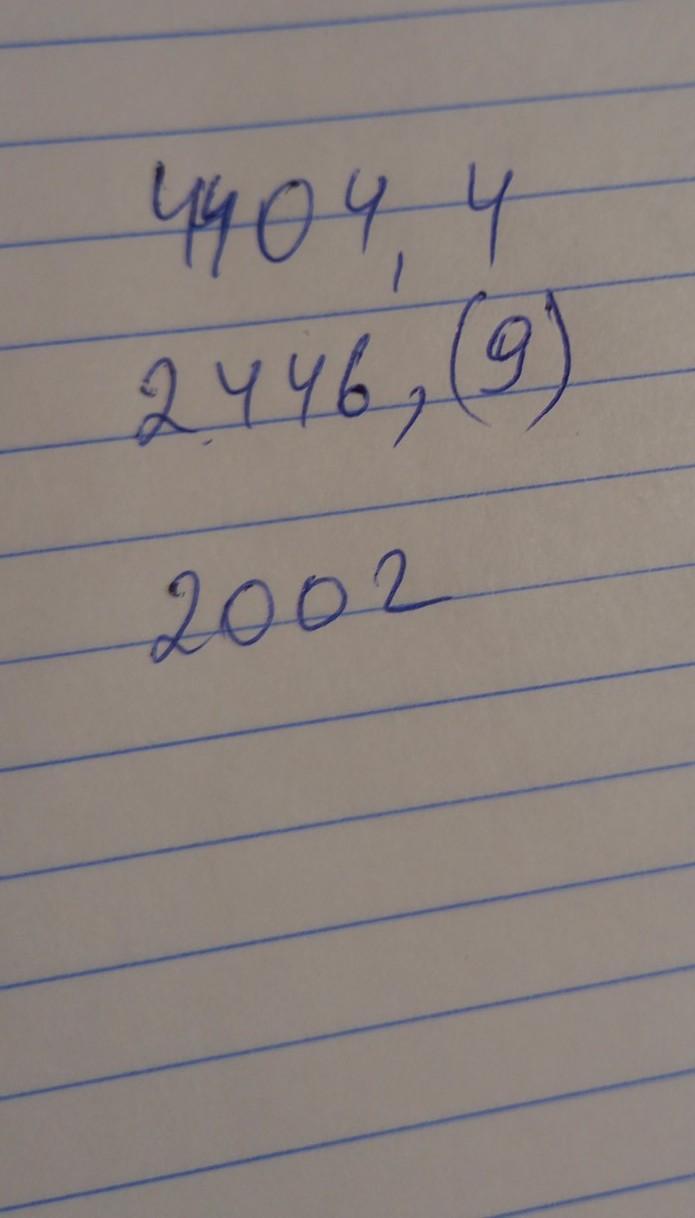 4404,4
2446,(9)
2002